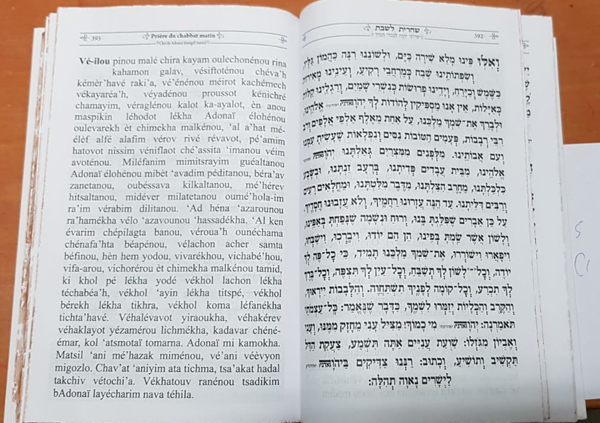 393
Prière du chabbat matin
Vé-ilou pinou malé chira kayam oulechonénou rina
kahamon galav, vésiftoténou chéva'h
kémèr'havé raki'a, vé'énénou méirot kachémech
vékayaréa'h, véyadénou proussot kénichré
chamayim, véraglénou kalot ka-ayalot, èn anou
maspikin léhodot lékha Adonaï élohénou
oulevarekh èt chimekha malkénou, 'al a'hat mé-
élèf alfé alafim vérov rivé révavot, pé'amim
hatovot nissim véniflaot ché'assita 'imanou véim
avoténou. Miléfanim mimitsrayim guéaltanou
Adonaï élohénou mibèt 'avadim péditanou, béra'av
zanetanou, oubéssava kilkaltanou, mé'hérev
hitsaltanou, midéver milatetanou oumé'hola-im
ra'im vérabim dilitanou. 'Ad héna 'azarounou
ra'hamékha vélo 'azavounou 'hassadékha. 'Al ken
évarim chépilagta banou, véroua'h ounéchama
chénafa'hta béapénou, vélachon acher samta
béfinou, hèn hem yodou, vivarékhou, vichabé'hou,
vifa-arou, vichorérou èt chimekha malkénou tamid,
ki khol pé lékha yodé vékhol lachon lékha
téchabéa'h, vékhol 'ayin lékha titspé, vékhol
bérekh lékha tikhra, vékhol koma léfanékha
tichta'havé. Véhalévavot yiraoukha, véhakérev
véhaklayot yézamérou lichmékha, kadavar chéné-
émar, kol 'atsmotaï tomarna. Adonaï mi kamokha.
Matsil 'ani mé'hazak miménou, vé'ani véèvyon
migozlo. Chav'at 'aniyim ata tichma, tsa'akat hadal
takchiv vétochi'a. Vékhatouv ranénou tsadikim
bAdonaï layécharim nava téhila.
שחרית לשבת
392
וְאִלּוּ פִּינוּ מָלֵא שִׁירָה כַּיָּם, וּלְשׁוֹנֵנוּ רִנָּה כַּהֲמוֹן גַּלָּיו,
וְשִׂפְתוֹתֵינוּ שֶׁבַח כְּמֶרְחֲבֵי רָקִיעַ, וְעֵינֵינוּ מְאִירוֹת
כַּשֶּׁמֶשׁ וְכַיָּרֵחַ, וְיָדֵינוּ פְרוּשׂוֹת כְּנִשְׁרֵי שָׁמָיִם, וְרַגְלֵינוּ קַלּוֹת
כָּאַיָּלוֹת, אֵין אָנוּ מַסְפִּיקִין לְהוֹדוֹת לָךְ יְהֹוָה אֱלֹהֵינוּ
וּלְבָרֵךְ אֶת־שִׁמְךָ מַלְכֵּנוּ, עַל אַחַת מֵאֶלֶף אַלְפֵי אֲלָפִים וְרוֹב
רִבֵּי רְבָבוֹת, פְּעָמִים הַטּוֹבוֹת נִסִּים וְנִפְלָאוֹת שֶׁעָשִׂיתָ עִמָּנוּ
וְעִם אֲבוֹתֵינוּ. מִלְּפָנִים מִמִּצְרַיִם גְּאַלְתָּנוּ יְהֹוָה
אֱלֹהֵינוּ, מִבֵּית עֲבָדִים פְּדִיתָנוּ, בְּרָעָב זַנְתָּנוּ, וּבְשָׂבָע
כִּלְכַּלְתָּנוּ, מֵחֶרֶב הִצַּלְתָּנוּ, מִדֶּבֶר מִלַּטְתָּנוּ, וּמֵחֳלָאִים רָעִים
וְרַבִּים דִּלִּיתָנוּ. עַד הֵנָּה עֲזָרוּנוּ רַחֲמֶיךָ, וְלֹא עֲזָבוּנוּ חֲסָדֶיךָ.
עַל כֵּן אֵבָרִים שֶׁפִּלַּגְתָּ בָּנוּ, וְרוּחַ וּנְשָׁמָה שֶׁנָּפַחְתָּ בְּאַפֵּינוּ,
וְלָשׁוֹן אֲשֶׁר שַׂמְתָּ בְּפִינוּ, הֵן הֵם יוֹדוּ, וִיבָרְכוּ, וִישַׁבְּחוּ,
וִיפָאֲרוּ וִישׁוֹרְרוּ, אֶת־שִׁמְךָ מַלְכֵּנוּ תָּמִיד, כִּי כָל־פֶּה לְךָ
יוֹדֶה, וְכָל־לָשׁוֹן לְךָ תְשַׁבֵּחַ, וְכָל־עַיִן לְךָ תְצַפֶּה, וְכָל־בֶּרֶךְ
לְךָ תִכְרַע, וְכָל־קוֹמָה לְפָנֶיךָ תִשְׁתַּחֲוֶה. וְהַלְּבָבוֹת יִירָאוּךָ,
וְהַקֶּרֶב וְהַכְּלָיוֹת יְזַמְּרוּ לִשְׁמֶךָ, כַּדָּבָר שֶׁנֶּאֱמַר: כָּל־עַצְמוֹתַי
תֹּאמַרְנָה: יְהֹוָה מִי כָמוֹךָ: מַצִּיל עָנִי מֵחָזָק מִמֶּנּוּ, וְעָנִי
וְאֶבְיוֹן מִגּוֹזְלוֹ: שַׁוְעַת עֲנִיִּים אַתָּה תִשְׁמַע, צַעֲקַת הַדַּל
תַּקְשִׁיב וְתוֹשִׁיעַ, וְכָתוּב: רַנְּנוּ צַדִּיקִים בַּיהֹוָה
לַיְשָׁרִים נָאוָה תְהִלָּה: